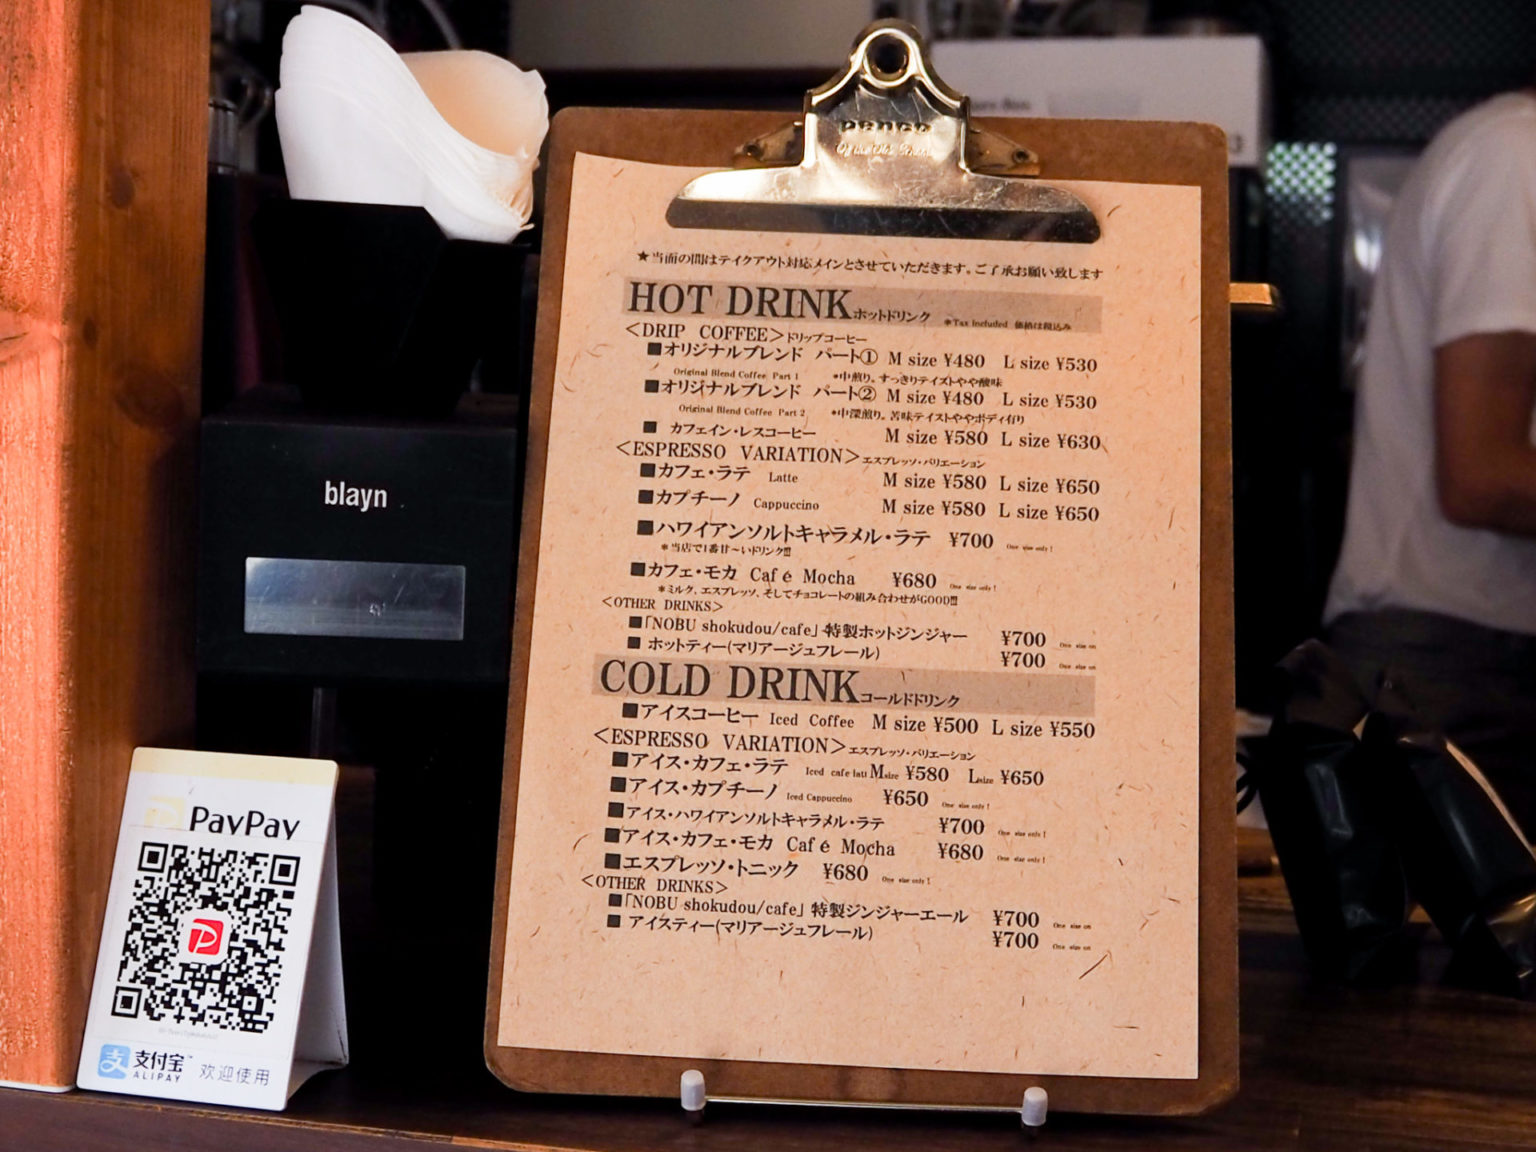 penco
★当面の間はテイクアウト対応メインとさせていただきます。ご了承お願い致します
HOT DRINK ホットドリンク *Tax Included 価格は税込み
<DRIP COFFEE>ドリップコーヒー
■オリジナルブレンド パート① M size ¥480 L size ¥530
Original Blend Coffee Part 1 *中煎り。すっきりテイストやや酸味
■オリジナルブレンド パート② M size ¥480 L size ¥530
Original Blend Coffee Part 2 *中深煎り。苦味テイストややボディ有り
■ カフェイン・レスコーヒー M size ¥580 L size ¥630
<ESPRESSO VARIATION>エスプレッソ・バリエーション
■カフェ・ラテ Latte M size ¥580 L size ¥650
■カプチーノ Cappuccino M size ¥580 L size ¥650
■ハワイアンソルトキャラメル・ラテ ¥700 One size only !
*当店で1番甘〜いドリンク!!!
■カフェ・モカ Café Mocha ¥680 One size only !
*ミルク、エスプレッソ、そしてチョコレートの組み合わせがGOOD!!!
<OTHER DRINKS>
■「NOBU shokudou/cafe」特製ホットジンジャー ¥700 One size on
■ ホットティー(マリアージュフレール) ¥700 One size on
COLD DRINK コールドドリンク
■アイスコーヒー Iced Coffee M size ¥500 L size ¥550
<ESPRESSO VARIATION>エスプレッソ・バリエーション
■アイス・カフェ・ラテ Iced cafe latt Msize ¥580 Lsize ¥650
■アイス・カプチーノ Iced Cappuccino ¥650 One size only !
■アイス・ハワイアンソルトキャラメル・ラテ ¥700 One size only !
■アイス・カフェ・モカ Café Mocha ¥680 One size only !
■エスプレッソ・トニック ¥680 One size only !
<OTHER DRINKS>
■「NOBU shokudou/cafe」特製ジンジャーエール ¥700 One size on
■ アイスティー(マリアージュフレール) ¥700 One size on
blayn
PayPay
支付宝 欢迎使用
ALIPAY